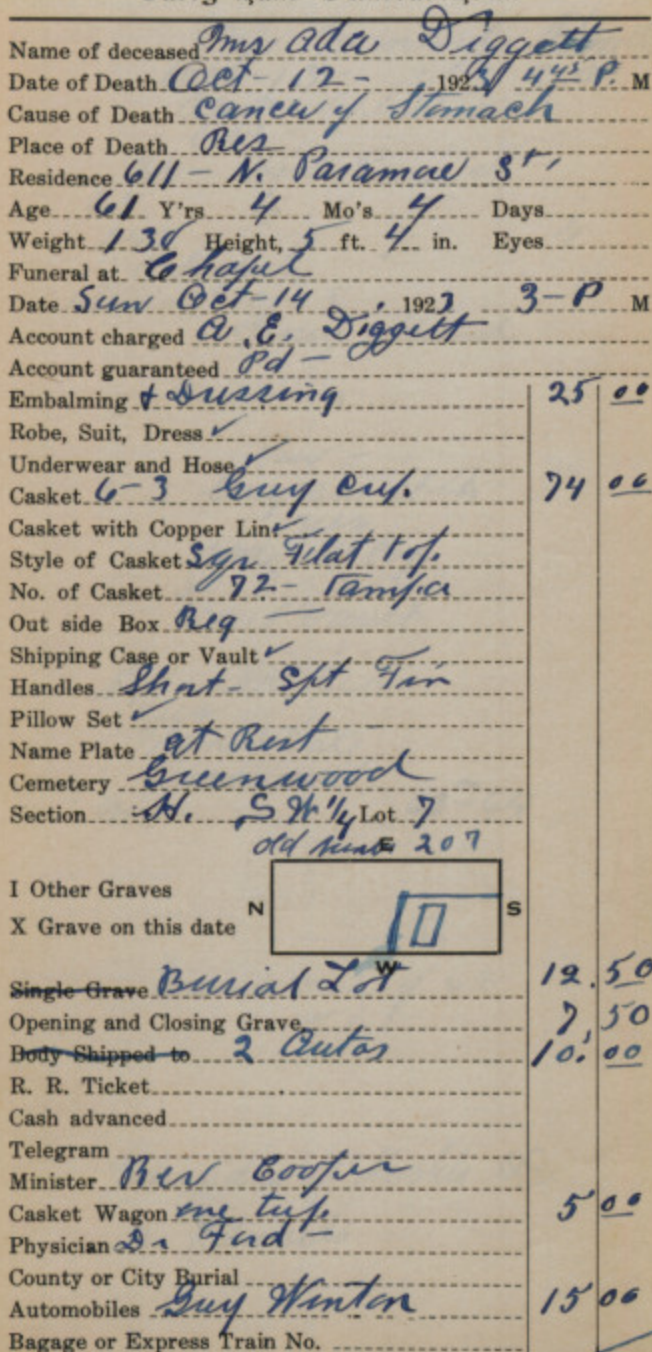 Name of deceased Mrs Ada Diggett
Date of Death Oct - 12 - 1923 4 45 P. M
Cause of Death Cancer of Stomach
Place of Death Res
Residence 611 - N. Paramore St,
Age 61 Y'rs 4 Mo's 4 Days
Weight 130 Height, 5 ft. 4 in. Eyes
Funeral at Chapel
Date Sun Oct - 14, 1923 3 - P M
Account charged A. E. Diggett
Account guaranteed Pd -
Embalming & Dressing 25 00
Robe, Suit, Dress ✓
Underwear and Hose ✓
Casket 6-3 Grey Crep. 74 00
Casket with Copper Lin ✓
Style of Casket Sqr Flat Top.
No. of Casket 72 - Tampa
Out side Box Reg -
Shipping Case or Vault ✓
Handles Short - Fin
Pillow Set ✓
Name Plate at Rest
Cemetery Greenwood
Section H. S W 1/4 Lot 7
old 207
E
I Other Graves
N S
X Grave on this date
W
Single Grave Burial Lot 12.50
Opening and Closing Grave 7,50
Body Shipped to 2 Autos 10.00
R. R. Ticket
Cash advanced
Telegram
Minister Rev Cooper
Casket Wagon one trip 5 00
Physician Dr Ford -
County or City Burial
Automobiles Grey Winton 15 00
Bagage or Express Train No.